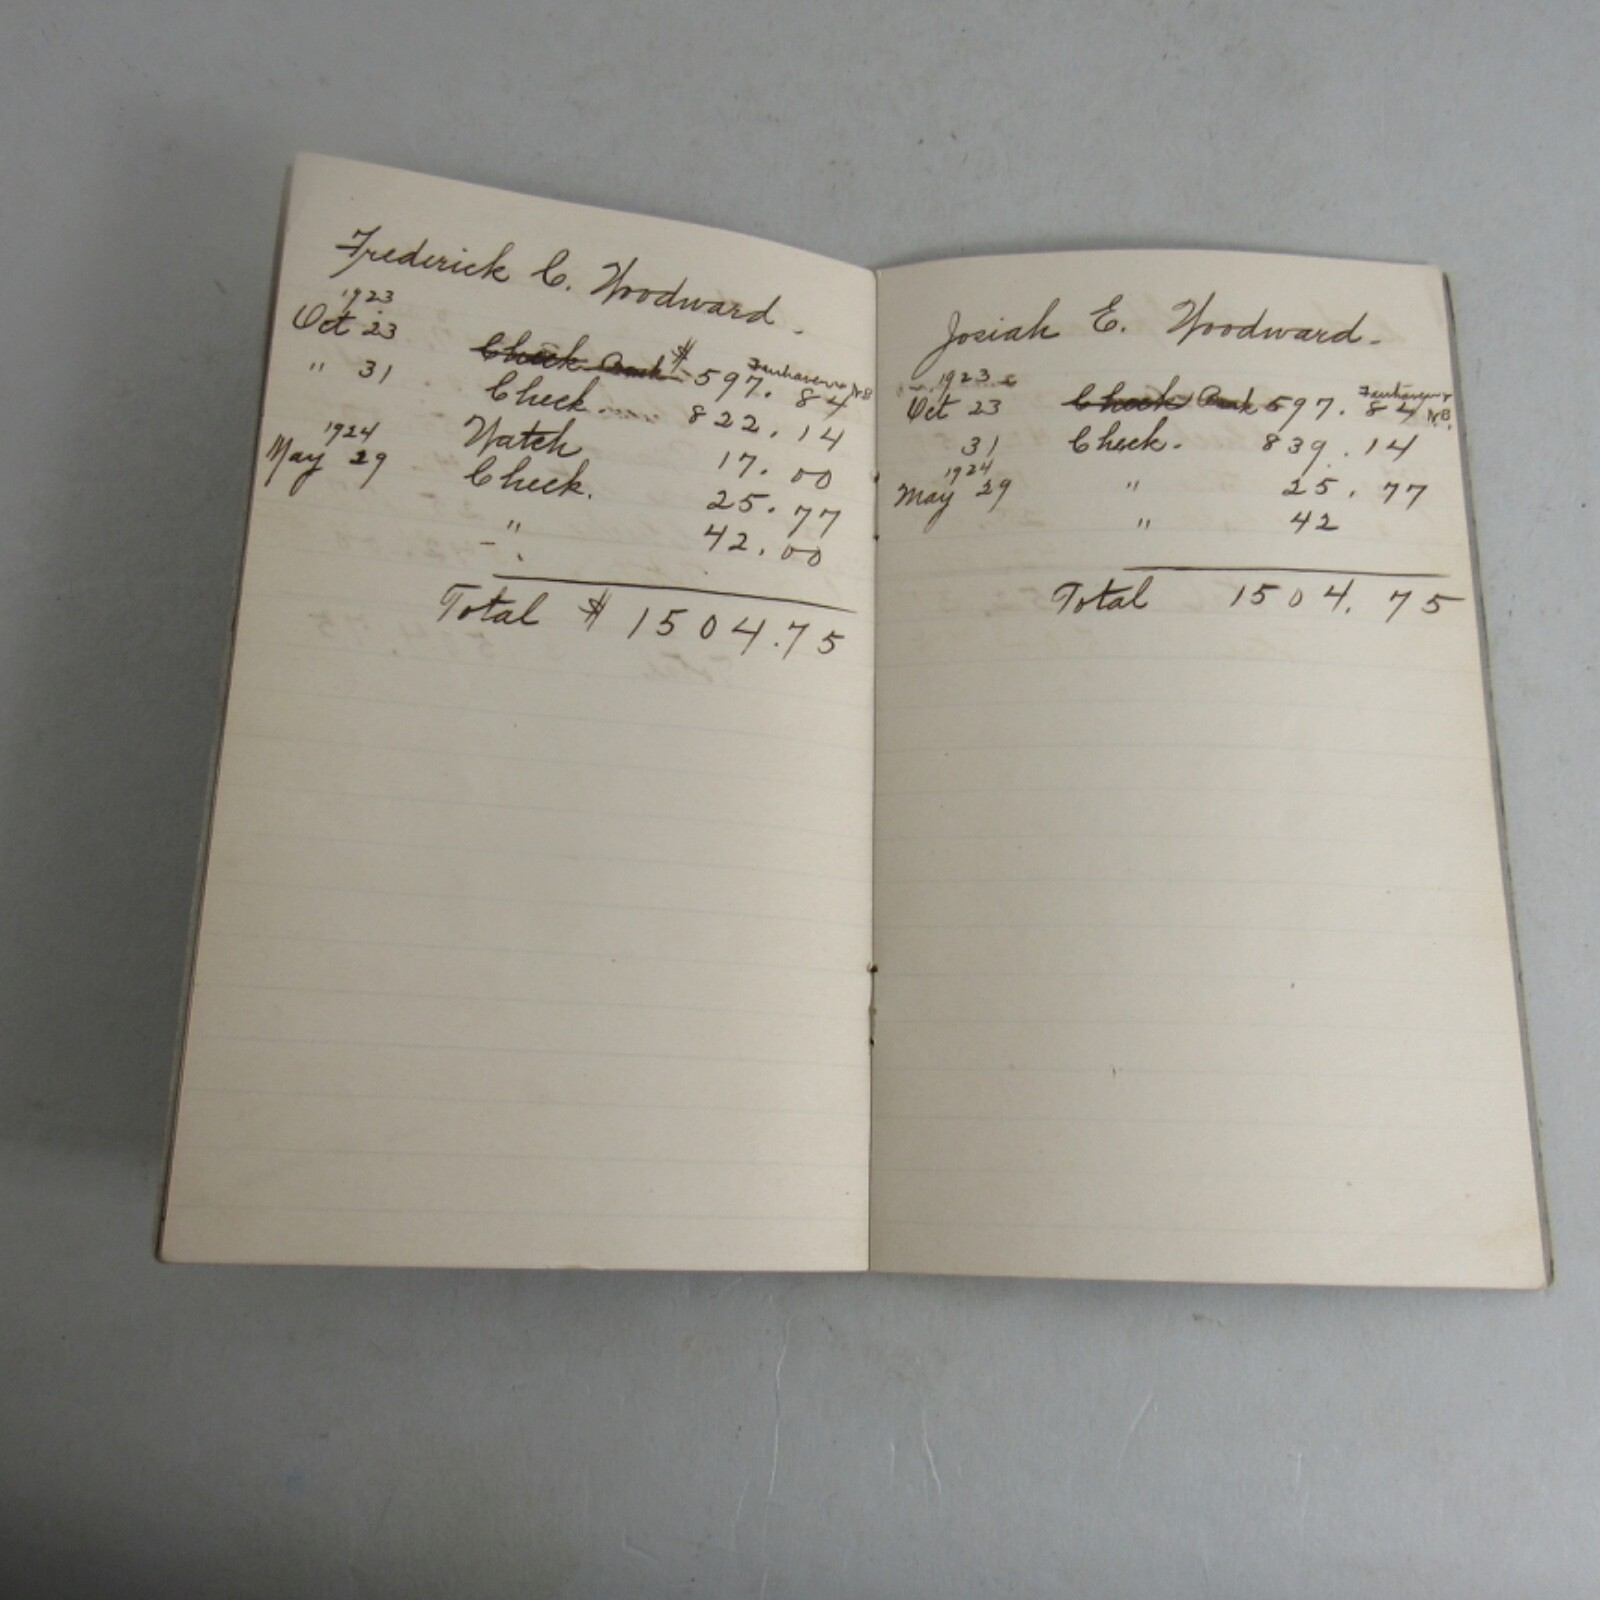 Frederick C. Woodward.
1923
Oct 23 Check Bank $597.84 Fairhaven & N.B.
" 31 Check. 822.14
Watch 17.00
1924
May 29 Check. 25.77
" 42.00
Total $1504.75
Josiah E. Woodward.
1923
Oct 23 Check Bank 597.84 Fairhaven & N.B.
31 Check. 839.14
1924
May 29 " 25.77
" 42
Total 1504.75